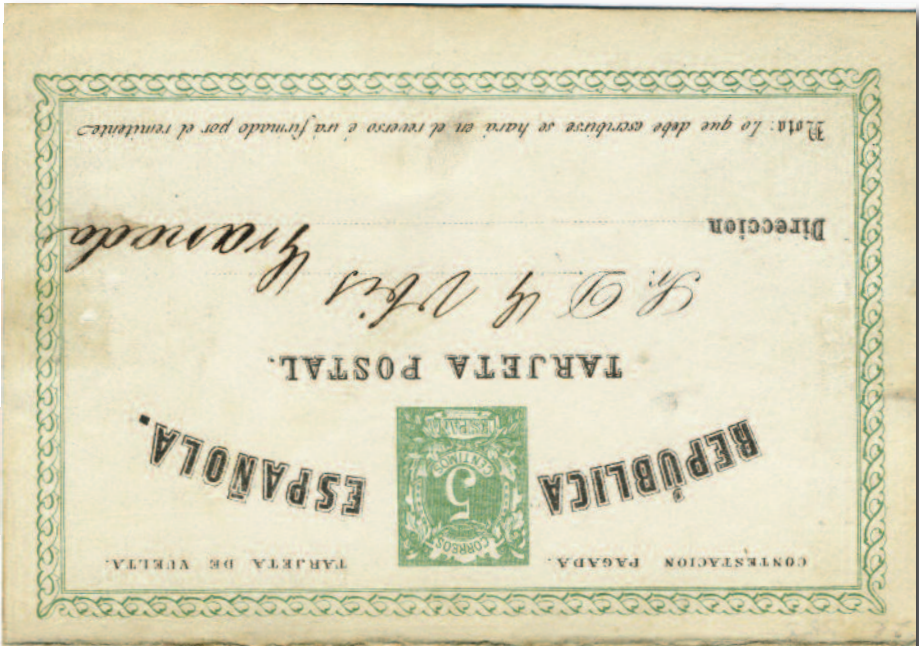 CONTESTACION PAGADA. TARJETA DE VUELTA.
REPÚBLICA ESPAÑOLA.
CORREOS
5
CENTIMOS
ESPAÑA
TARJETA POSTAL.
Sr. D
Granada
Direccion
Nota: Lo que debe escribirse se hará en el reverso é irá firmado por el remitente